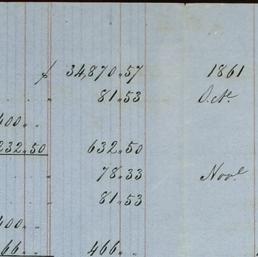 34,870.57 1861
81.53 Octr
400..
232.50 632.50
78.33 Novr
81.53
400..
66.. 466..